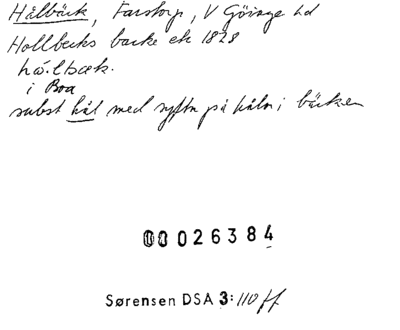 Hålbäck, Farstorp, V Göinge hd
Hallbecks backe ek 1828
hå.lbæk.
i Boa
subst hål med syftn på hålor i bäcken
00026384
Sørensen DSA 3: 110 ff